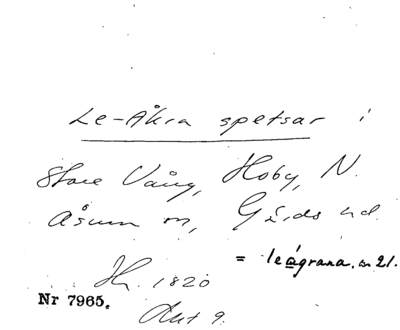 Le-Åkra spetsar i
Store Vång, Hoby, N.
Åsum sn, Gärds hd.
= leågrana, sn 21.
1820
Nr 7965.
Akt 9.